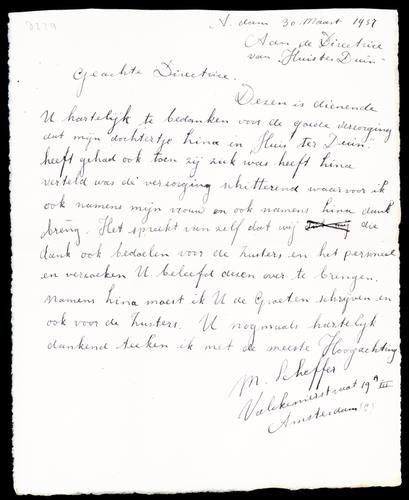 A. dam 30 Maart 1937
Aan de Directrice
van "Huis ter Duin"
Geachte Directrice.
Dezen is dienende
U hartelijk te bedanken voor de goede verzorging
dat mijn dochtertje Lina in "Huis ter Duin"
heeft gehad ook toen zij ziek was heeft Lina
verteld was de verzorging schitterend waarvoor ik
ook namens mijn vrouw en ook namens Lina dank
breng. Het spreekt van zelf dat wij die
dank ook bedoelen voor de Zusters en het personeel
en verzoeken U beleefd dezen over te brengen.
Namens Lina moest ik U de Groeten schrijven en
ook voor de Zusters. U nogmaals hartelijk
dankend teeken ik met de meeste Hoogachting
M. Scheffer
Valckenierstraat 19 III
Amsterdam (C)